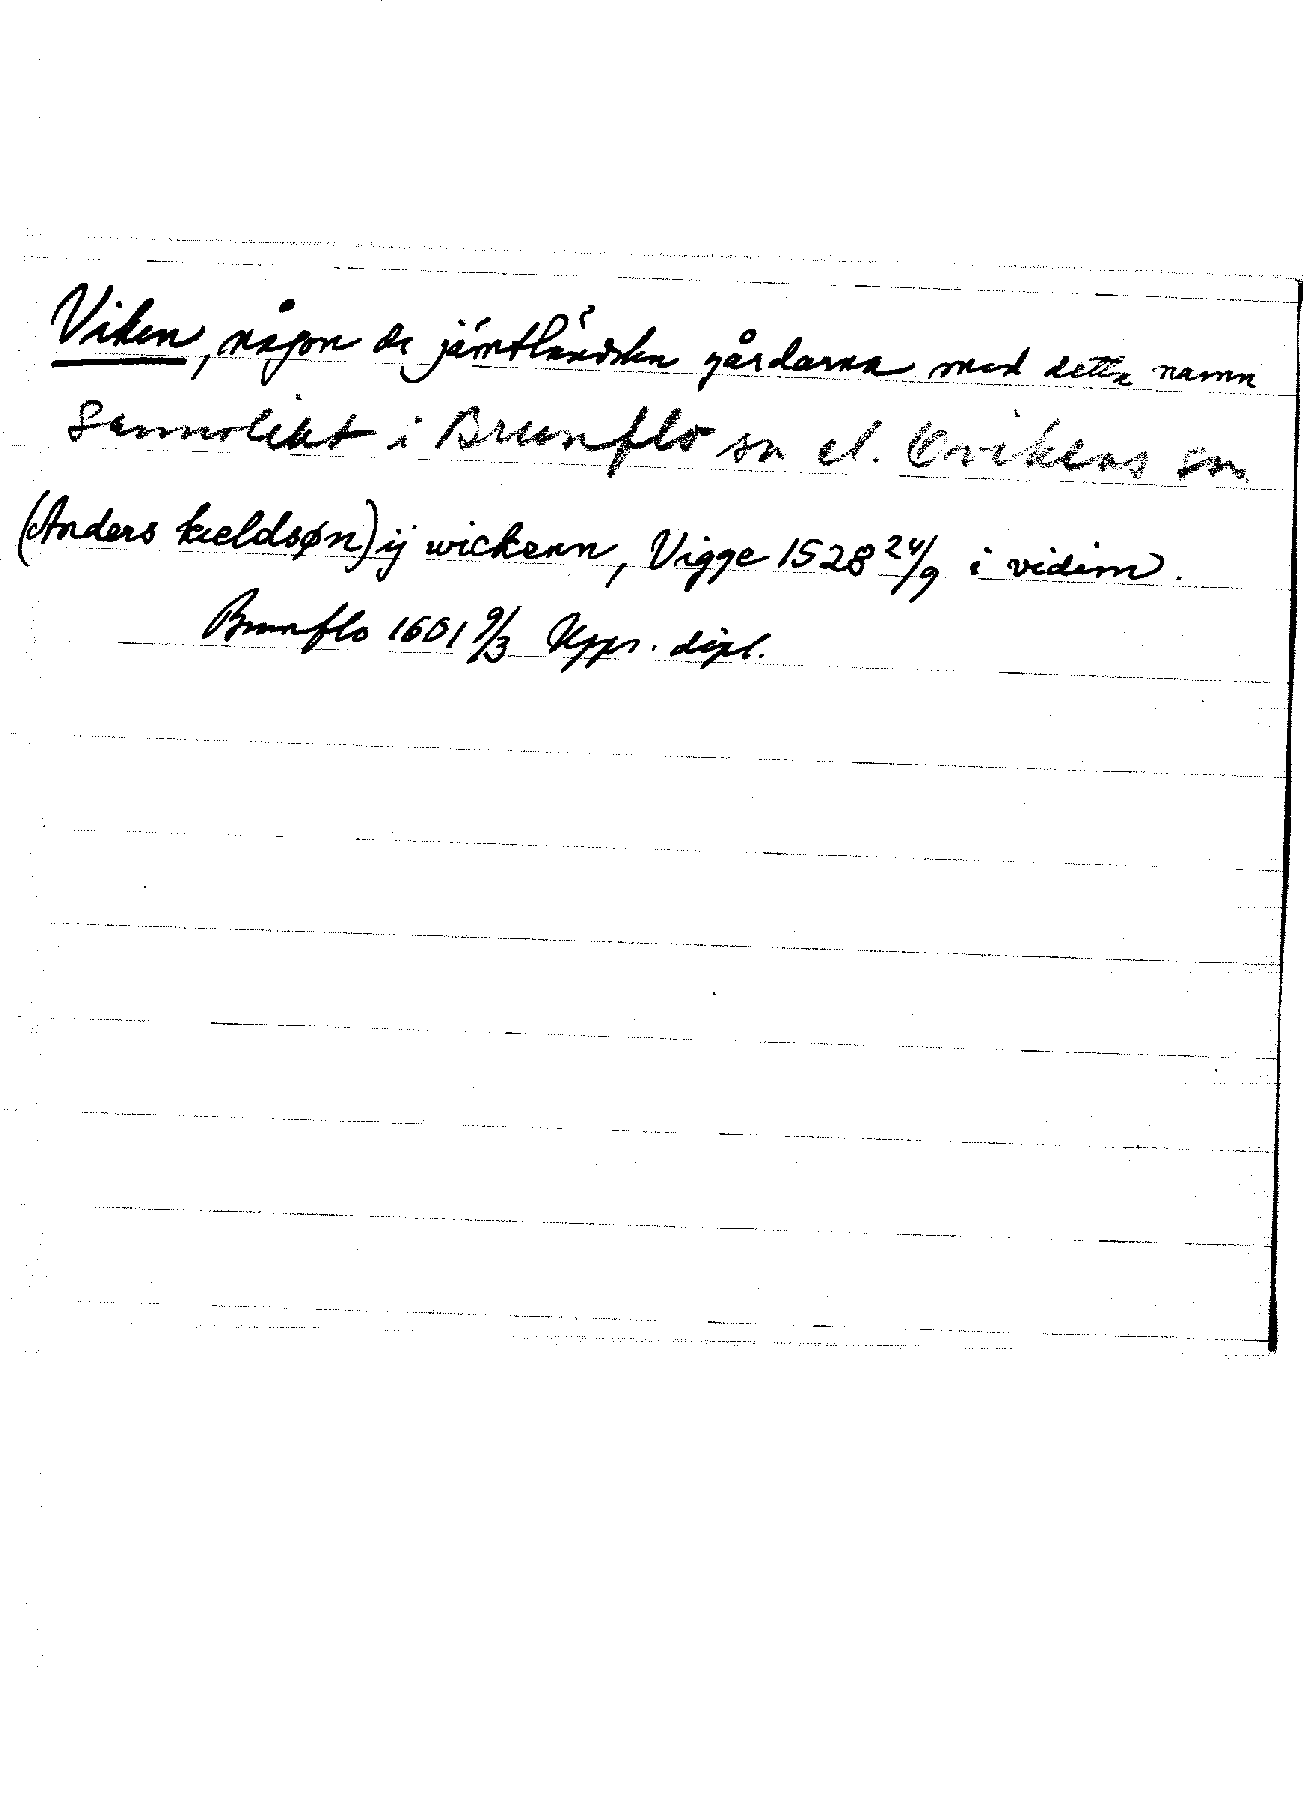 Viken, någon de jämtländska gårdarna med detta namn
Sannolikt i Brunflo sn el. Ovikens sn
(Anders kieldsøn) ij wickenn, Vigge 1528 24/9 i vidim.
Brunflo 1601 9/3 Upps. dipl.